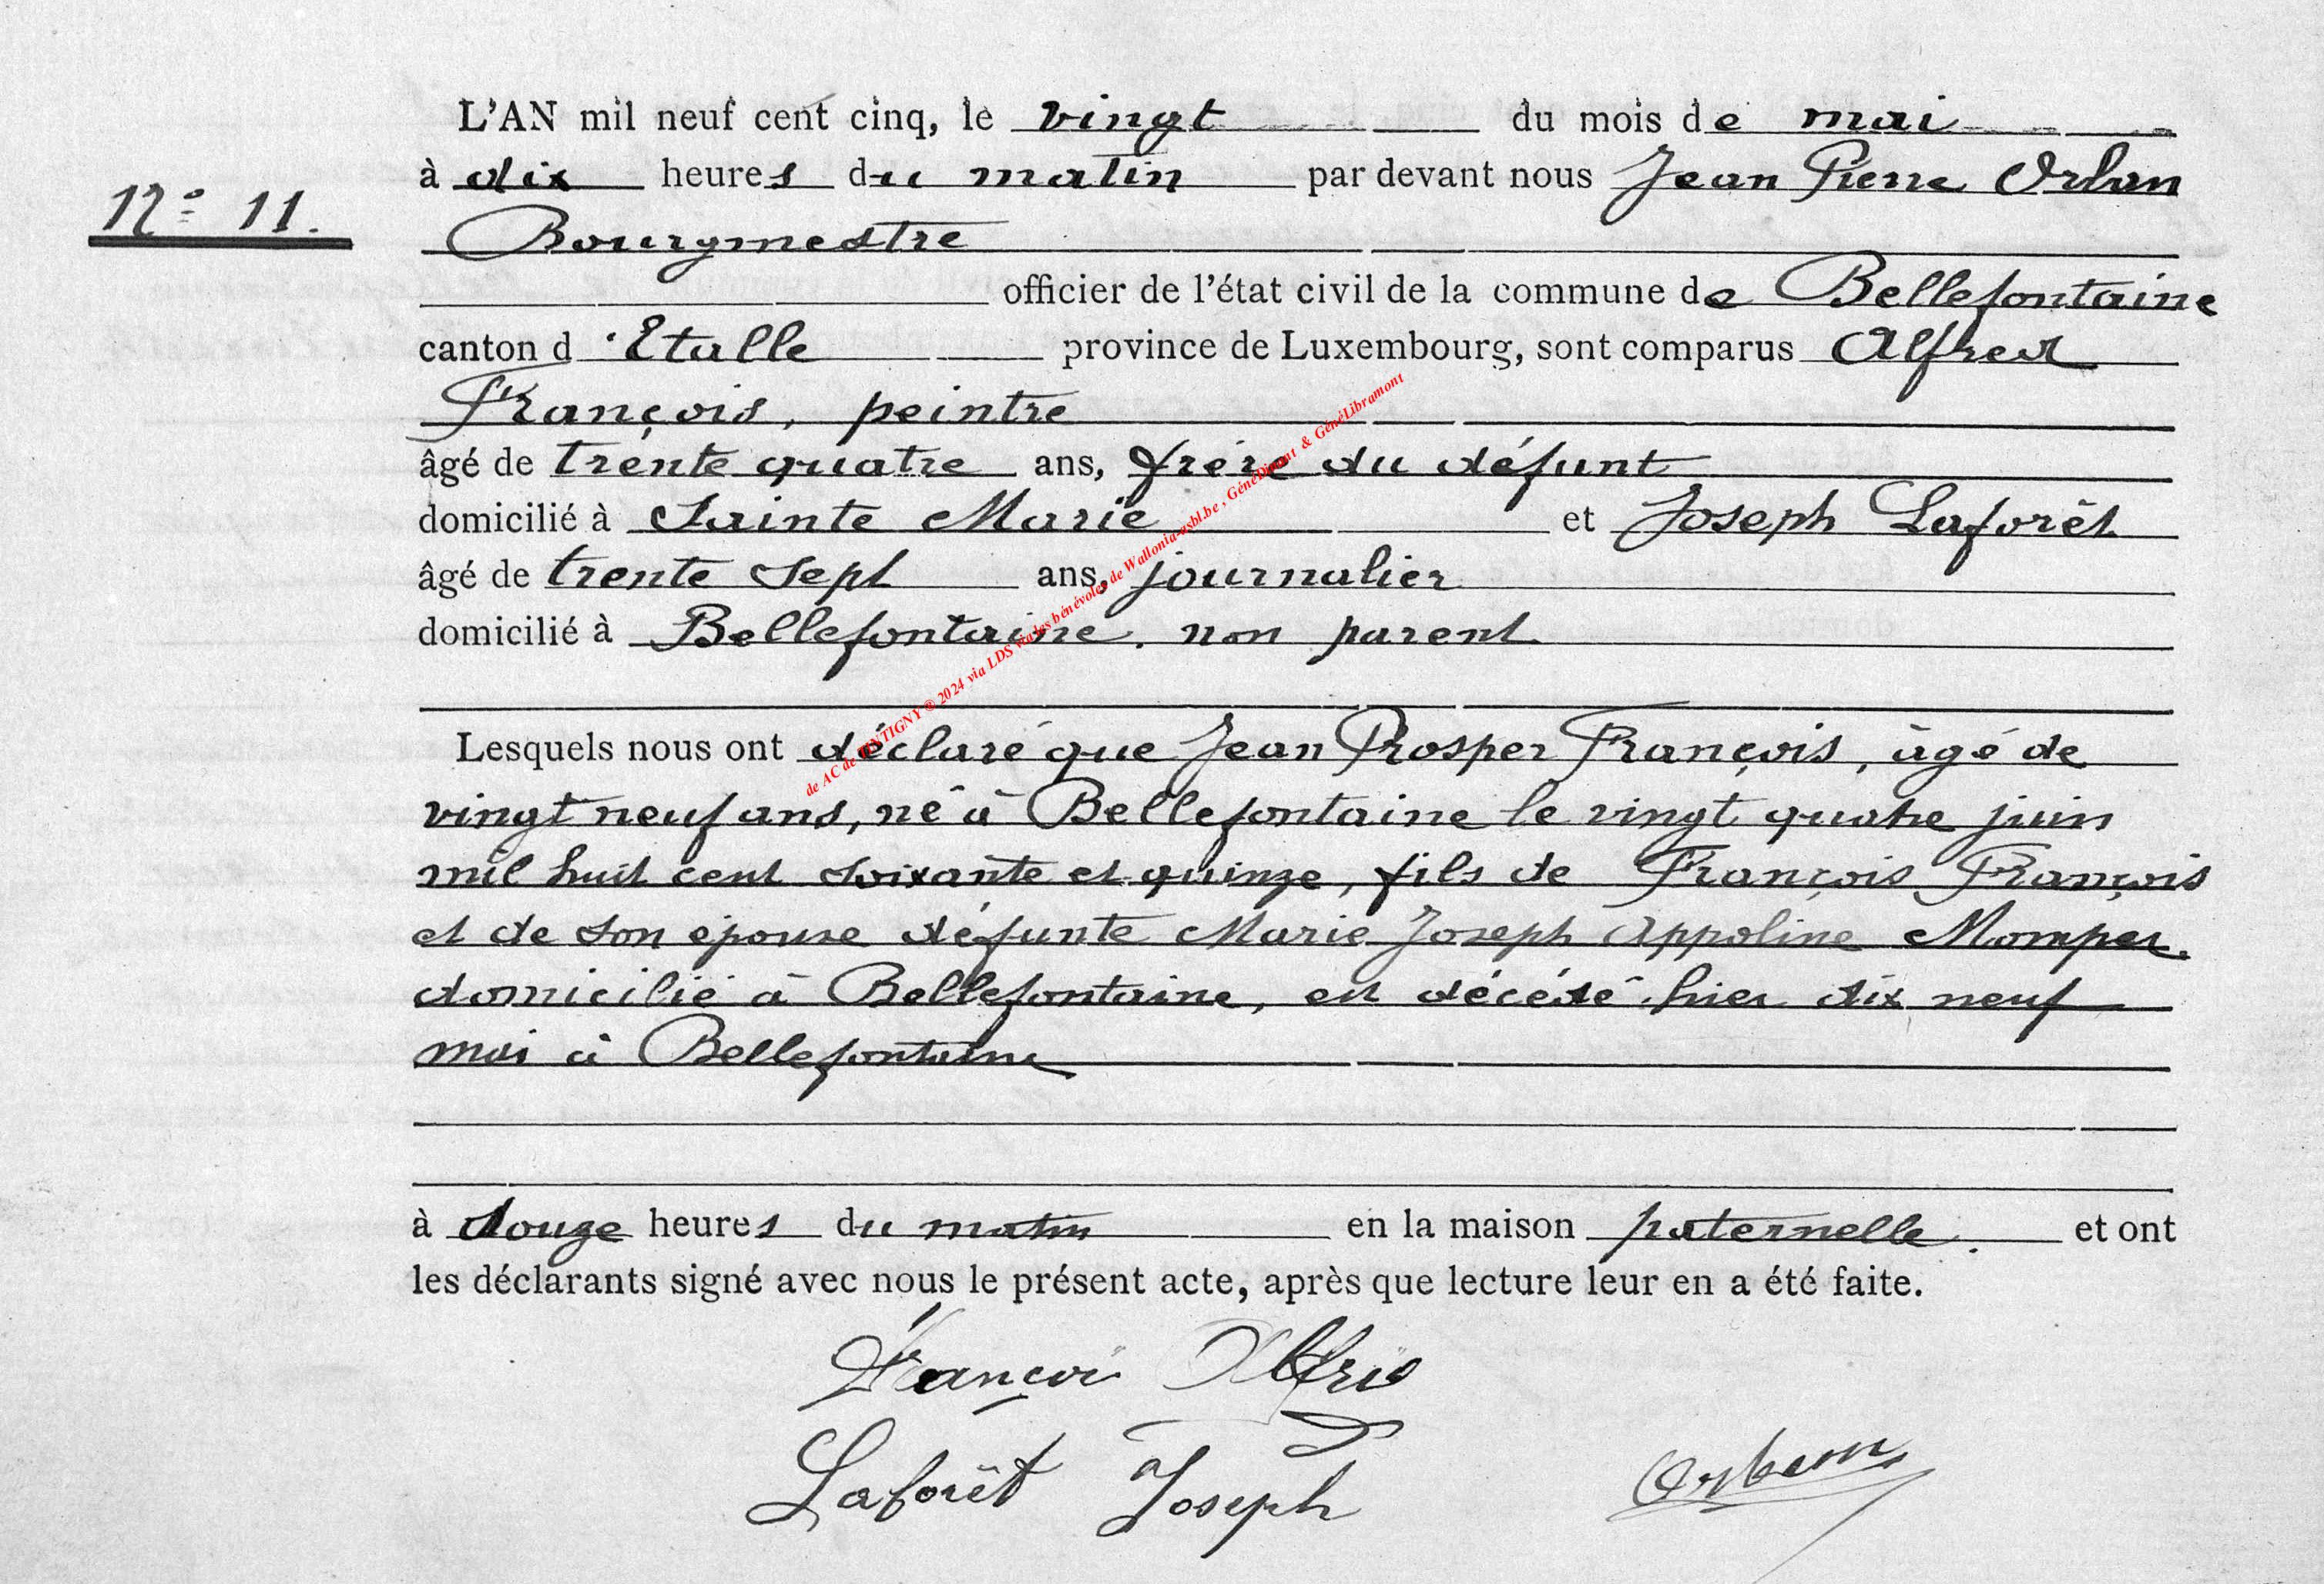 L'AN mil neuf cent cinq, le vingt du mois de mai
à dix heures du matin par devant nous Jean Pierre Orban
N° 11.
Bourgmestre
officier de l'état civil de la commune de Bellefontaine
canton d'Etalle province de Luxembourg, sont comparus Alfred
François, peintre
âgé de trente quatre ans, frère du défunt
domicilié à Sainte Marie et Joseph Laforêt
âgé de trente sept ans, journalier
domicilié à Bellefontaine. non parent
de AC de TINTIGNY ® 2024 via LDS via les bénévoles de Wallonia-asbl.be, GénéDinant & GénéLibramont
Lesquels nous ont déclaré que Jean Prosper François, âgé de
vingt neuf ans, né à Bellefontaine le vingt quatre juin
mil huit cent soixante et quinze, fils de François François
et de son épouse défunte Marie Joseph Appoline Momper.
domicilié à Bellefontaine, est décédé hier dix neuf
mai à Bellefontaine
à douze heures du matin en la maison paternelle. et ont
les déclarants signé avec nous le présent acte, après que lecture leur en a été faite.
François
Laforêt Joseph Orban